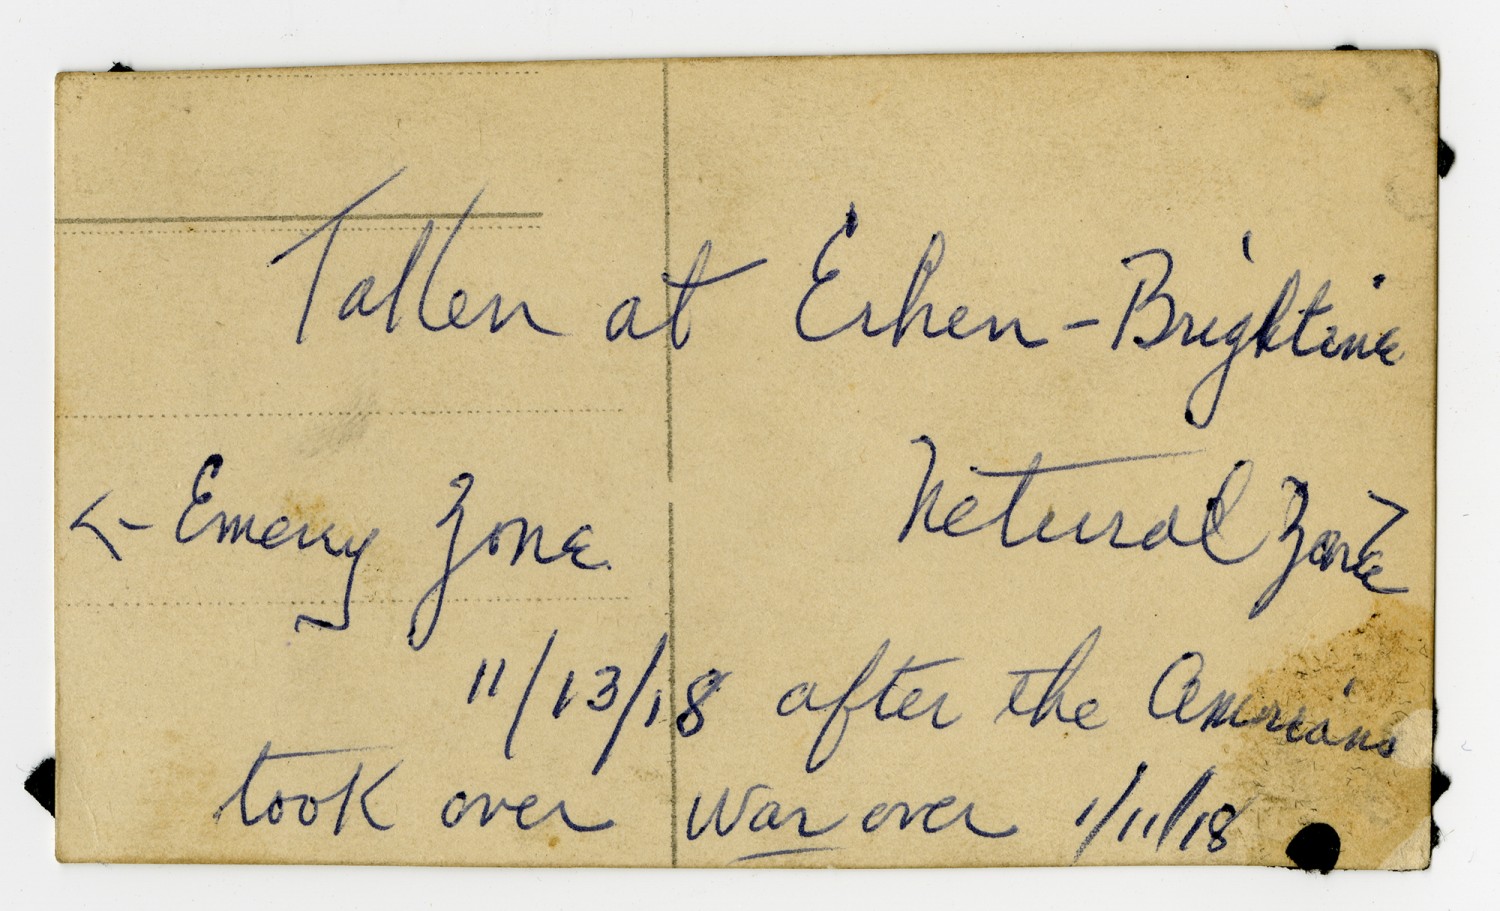 Taken at Eshen-Brightine
<- Emeny Zone Netural Zone >
11/13/18 after the Amricans
took over War over 11/11/18